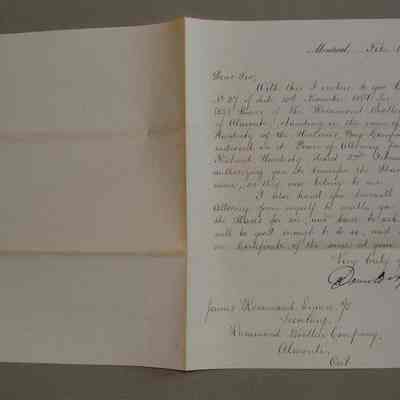 Montreal, Feb.
Dear Sir,
With this I enclose to you
No 27 of date 10th November 1881 for
Shares of the Rosamond Woollen
of Almonte, standing in the name of
Hardisty of the Hudsons Bay Company
endorsed on it Power of Attorney from
Richard Hardisty dated 22nd
authorizing you to transfer the Shares
name, as they now belong to me.
I also hand you herewith
Attorney from myself to enable you
the Shares for me, and have to ask
will be good enough to do so, and
me Certificate of the same at your
Very truly
James Rosamond Esquire Jr
Secretary,
Rosamond Woollen Company,
Almonte,
Ont